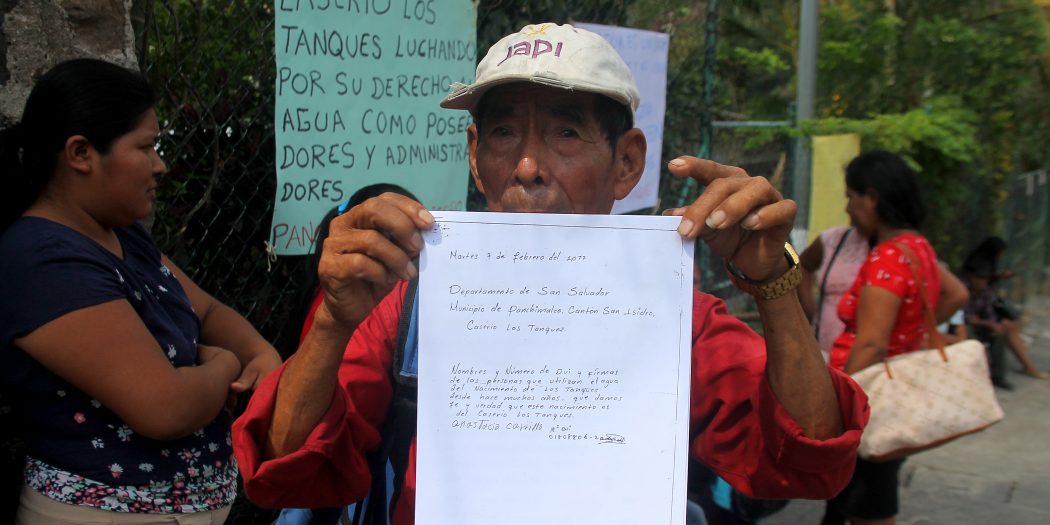 CASERIO LOS
TANQUES LUCHANDO
POR SU DERECHO
AGUA COMO POSEE
DORES Y ADMINISTRA
DORES.
PAN
japi
Martes 7 de febrero del 2017
Departamento de San Salvador
Municipio de Panchimalco, Canton San Isidro,
Caserio Los Tanques.
Nombres y Número de Dui y firmas
de las personas que utilizan el agua
del Nacimiento de Los Tanques
desde hace muchos años. que damos
fe y verdad que este nacimiento es
del Caserio Los Tanques.
anastacio carrillo N° Dui
01808806-2